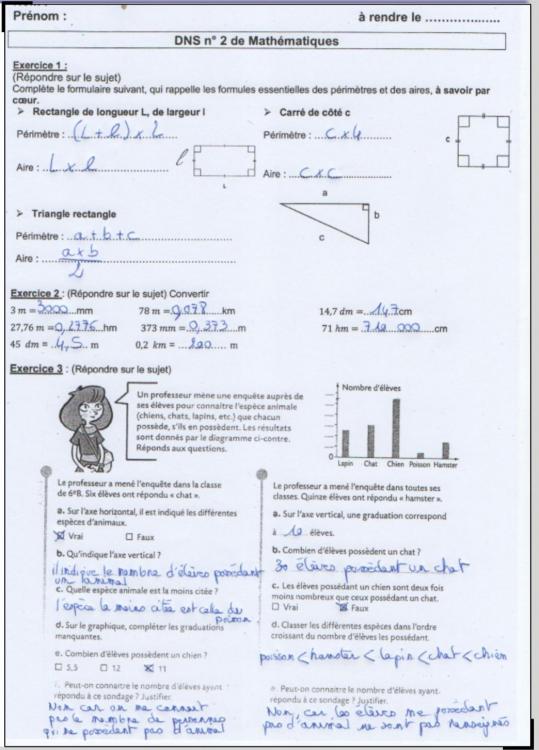 Prénom :
à rendre le
DNS n° 2 de Mathématiques
Exercice 1 :
(Répondre sur le sujet)
Complète le formulaire suivant, qui rappelle les formules essentielles des périmètres et des aires, à savoir par
cœur.
➢ Rectangle de longueur L, de largeur l
Périmètre : (L + l) x 2
Aire : L x l
l
L
➢ Carré de côté c
Périmètre : c x 4
Aire : c x c
c
➢ Triangle rectangle
Périmètre : a + b + c
Aire : a x b
2
a
b
c
Exercice 2 : (Répondre sur le sujet) Convertir
3 m = 3000 mm
78 m = 0,078 km
14,7 dm = 147 cm
27,76 m = 0,2776 hm
373 mm = 0,373 m
71 hm = 710 000 cm
45 dm = 4,5 m
0,2 km = 200 m
Exercice 3 : (Répondre sur le sujet)
Un professeur mène une enquête auprès de
ses élèves pour connaitre l'espèce animale
(chiens, chats, lapins, etc.) que chacun
possède, s'ils en possèdent. Les résultats
sont donnés par le diagramme ci-contre.
Réponds aux questions.
Nombre d'élèves
0
Lapin Chat Chien Poisson Hamster
Le professeur a mené l'enquête dans la classe
de 6ᵉB. Six élèves ont répondu « chat ».
a. Sur l'axe horizontal, il est indiqué les différentes
espèces d'animaux.
Vrai Faux
b. Qu'indique l'axe vertical ?
il indique le nombre d'élèves possédant
un animal
c. Quelle espèce animale est la moins citée ?
l'espèce la moins citée est celle du
poisson
d. Sur le graphique, compléter les graduations
manquantes.
e. Combien d'élèves possèdent un chien ?
5,5 12 11
Peut-on connaitre le nombre d'élèves ayant
répondu à ce sondage ? Justifier.
Non car on ne connait
pas le nombre de personnes
qui ne possèdent pas d'animal
Le professeur a mené l'enquête dans toutes ses
classes. Quinze élèves ont répondu « hamster ».
a. Sur l'axe vertical, une graduation correspond
à 10 élèves.
b. Combien d'élèves possèdent un chat ?
30 élèves possèdent un chat
c. Les élèves possédant un chien sont deux fois
moins nombreux que ceux possédant un chat.
Vrai Faux
d. Classer les différentes espèces dans l'ordre
croissant du nombre d'élèves les possédant.
poisson < hamster < lapin < chat < chien
e. Peut-on connaitre le nombre d'élèves ayant
répondu à ce sondage ? Justifier.
Non, car les élèves ne possédant
pas d'animal ne sont pas renseignés